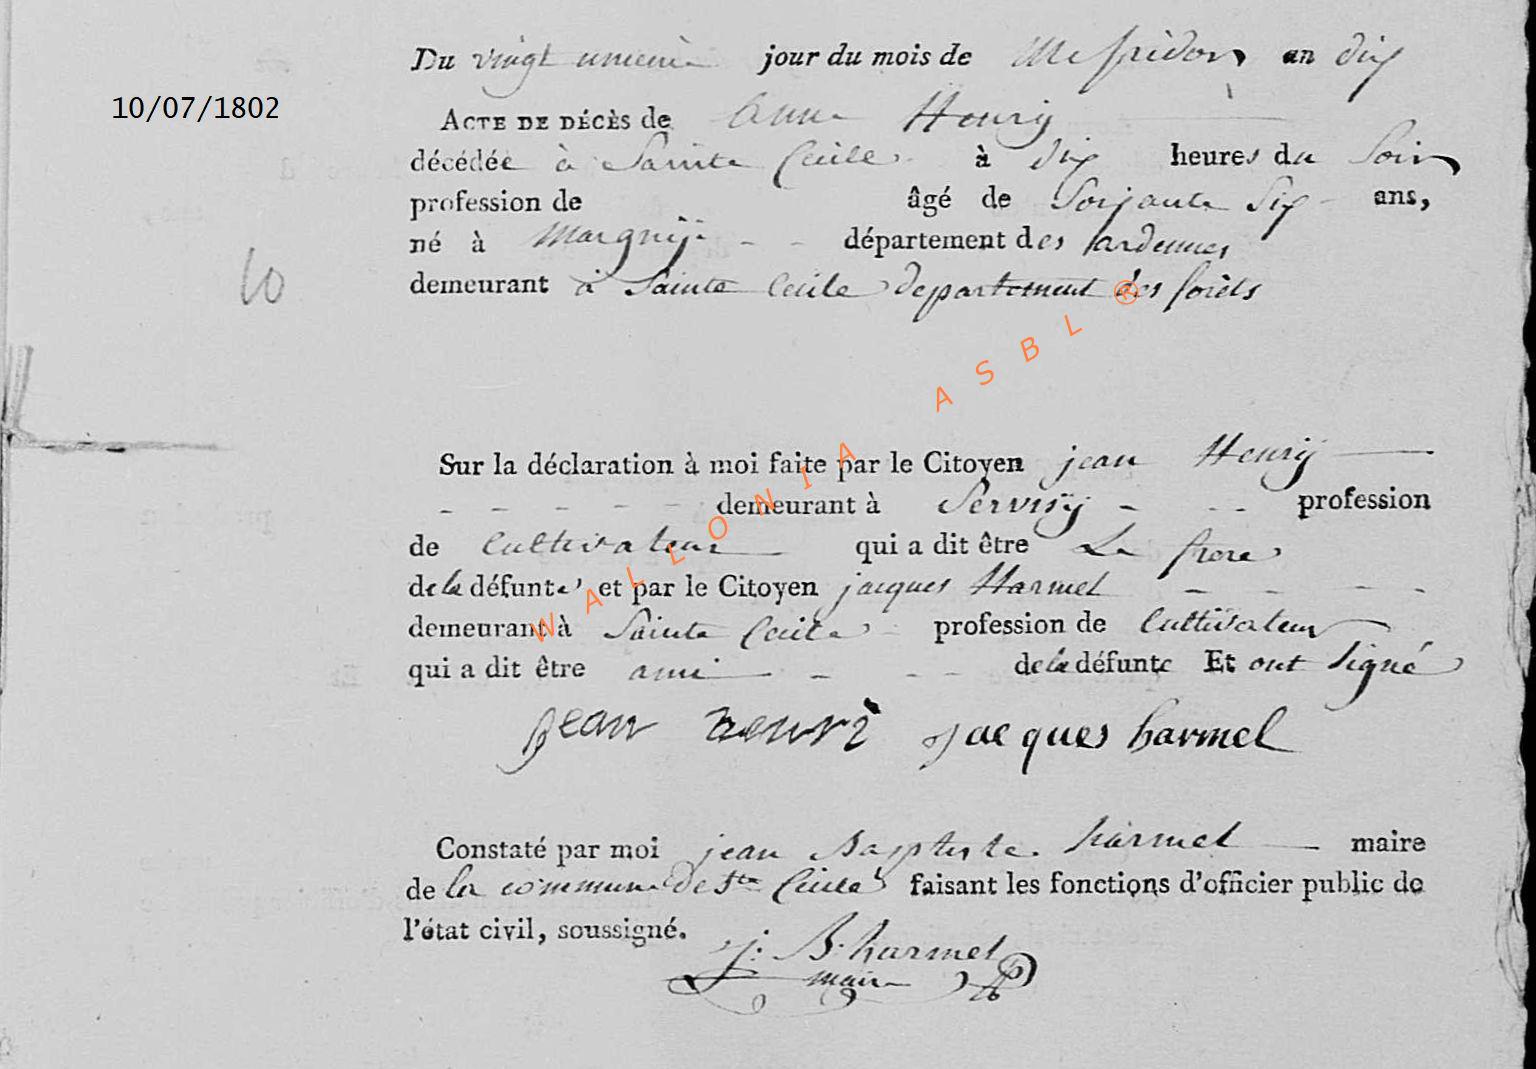 Du vingt unieme jour du mois de Messidor an dix
10/07/1802
ACTE DE DÉCÈS de Anne Henrÿ
décédée à Sainte Cecile à dix heures du Soir
profession de âgé de Soixante Six ans,
né à Margnÿ département des ardennes
10
demeurant à Sainte Cecile departement des forêts
WALLONIA ASBL ®
Sur la déclaration à moi faite par le Citoyen jean Henrÿ
demeurant à profession
de Cultivateur qui a dit être Le frere
de la défunte et par le Citoyen jacques Harmel
demeurant à Sainte Cecile profession de Cultivateur
qui a dit être ami de la défunte Et ont signé
jean henri jacques harmel
Constaté par moi jean Baptiste harmel maire
de la commune de Ste Cecile faisant les fonctions d'officier public de
l'état civil, soussigné.
j: B. harmel
maire